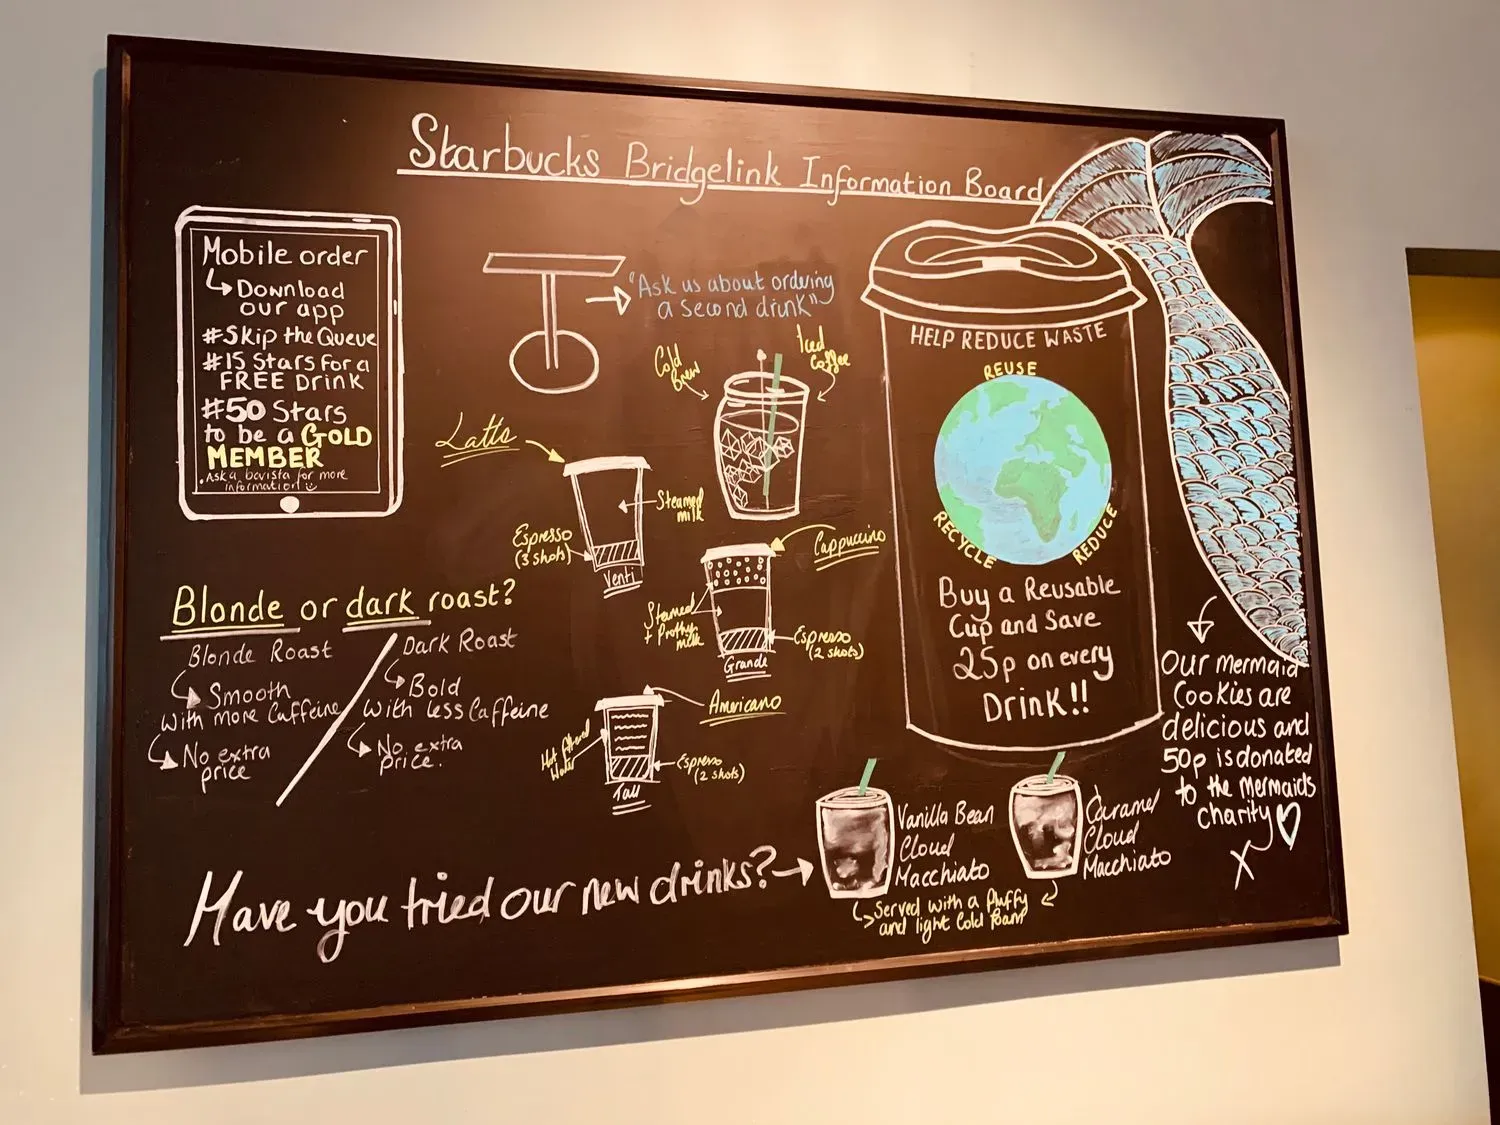 Starbucks Bridgelink Information Board
Mobile order
Download
our app
#Skip the Queue
#15 Stars for a
FREE Drink
#50 Stars
to be a GOLD
MEMBER
. Ask a barista for more
information!
"Ask us about ordering
a second drink"
Cold
Brew
Iced
Coffee
Latte
Steamed
milk
Espresso
(3 shots)
Venti
Cappuccino
Steamed
+ Frothy
milk
Espresso
(2 shots)
Grande
Americano
Hot filtered
Water
Espresso
(2 shots)
Tall
Blonde or dark roast?
Blonde Roast
Smooth
with more Caffeine
No extra
price
Dark Roast
Bold
with less Caffeine
No extra
price.
HELP REDUCE WASTE
REUSE
RECYCLE
REDUCE
Buy a Reusable
Cup and Save
25p on every
Drink!!
Our mermaid
Cookies are
delicious and
50p is donated
to the mermaids
charity
X
Have you tried our new drinks?
Vanilla Bean
Cloud
Macchiato
Caramel
Cloud
Macchiato
Served with a fluffy
and light Cold foam